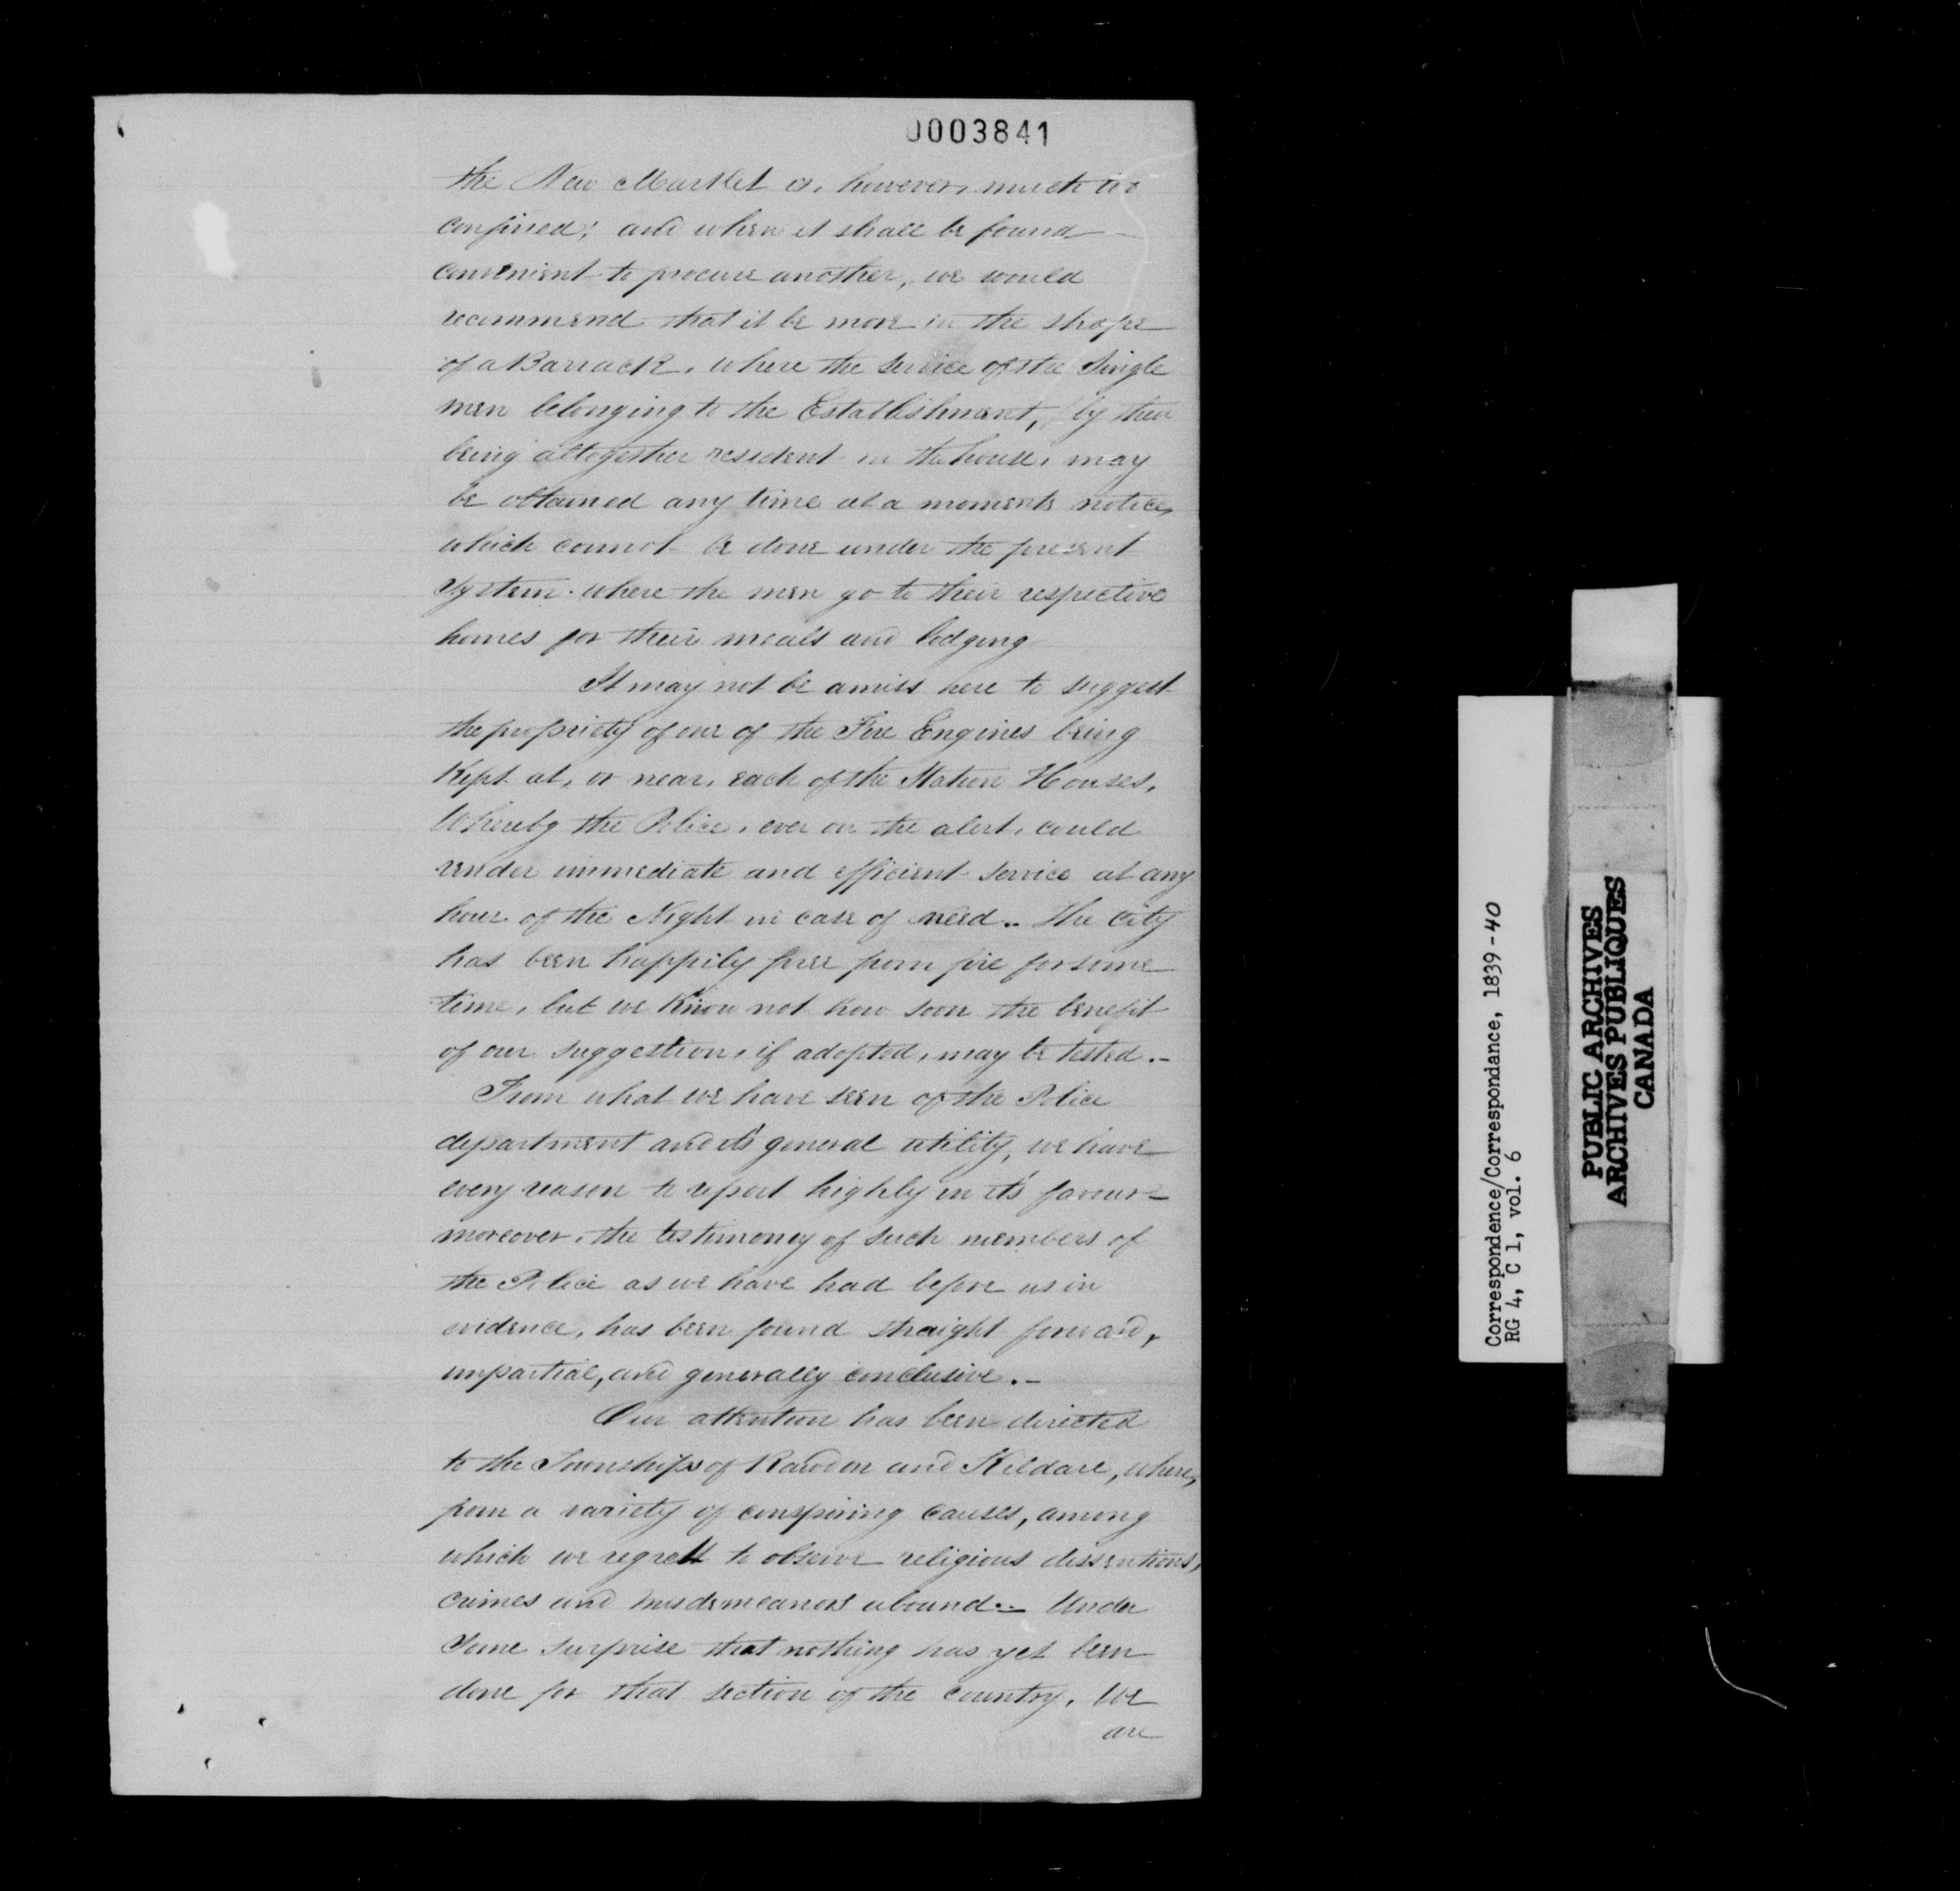 0003841
the New Market is, however, much too
confined; and when it shall be found
convenient to procure another, we would
recommend that it be more in the shape
of a Barrack, where the service of the Single
men belonging to the Establishment, by their
being altogether resident in the house, may
be obtained any time at a moments notice,
which cannot be done under the present
System where the men go to their respective
homes for their meals and lodging
It may not be amiss here to suggest
the propriety of one of the Fire Engines being
Kept at, or near, each of the Station Houses,
Whereby the Police, ever on the alert, could
render immediate and efficient service at any
hour of the Night in case of need.. The City
has been happily free from fire for some
time, but we Know not how soon the benefit
of our suggestion, if adopted, may be tested.-
From what we have seen of the Police
department and it's general utility, we have
every reason to report highly in it's favour-
moreover, the testimony of such members of
the Police as we have had before us in
evidence, has been found straight forward,
impartial, and generally conclusive.-
Our attention has been directed
to the Townships of Rawdon and Kildare, where,
from a variety of conspiring causes, among
which we regrett to observe religious dissentions,
crimes and misdemeanors abound.- Under
Some surprise that nothing has yet been
done for that section of the country, We
are
Correspondence/Correspondance, 1839-40
RG 4, C 1, vol. 6
PUBLIC ARCHIVES
ARCHIVES PUBLIQUES
CANADA